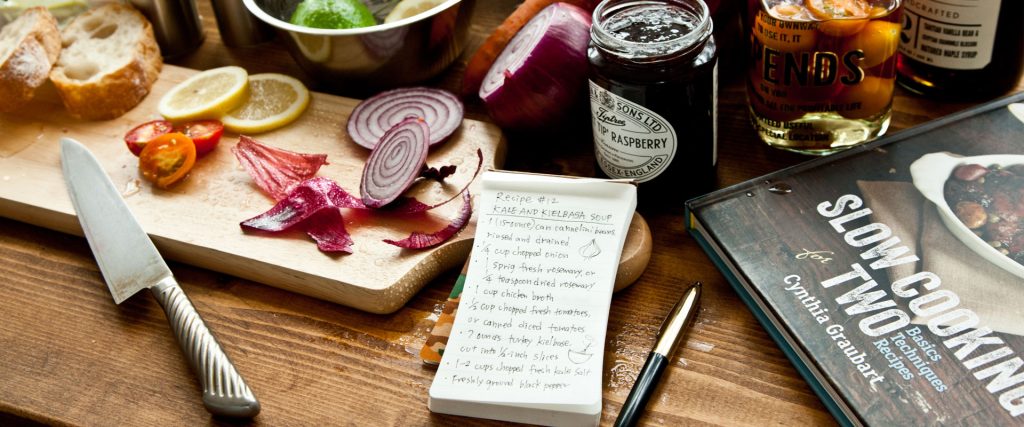 Recipe #12
KALE AND KIELBASA SOUP
1 (15-ounce) can cannelini beans,
rinsed and drained
1/4 cup chopped onion
1 sprig fresh rosemary, or
1/4 teaspoon dried rosemary
1 cup chicken broth
1/2 cup chopped fresh tomatoes,
or canned diced tomatoes
7 ounces turkey kielbasa,
cut into 1/2-inch slices
1-2 cups chopped fresh kale salt
Freshly ground black pepper
& SONS LTD
Tiptree
"TIP" RASPBERRY
ESSEX·ENGLAND
YOUR OWN
TO USE IT,
ENDS
ON YOU
SPECIAL
LOCATION
HANDCRAFTED
MAPLE SYRUP
SLOW COOKING
for
TWO
Basics
Techniques
Recipes
Cynthia Graubart